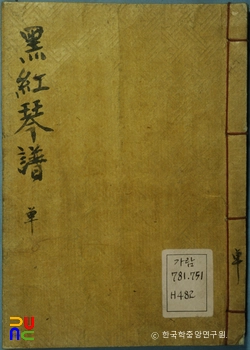 黑紅琴譜
單
單
가람
781.751
H482
ⓒ 한국학중앙연구원